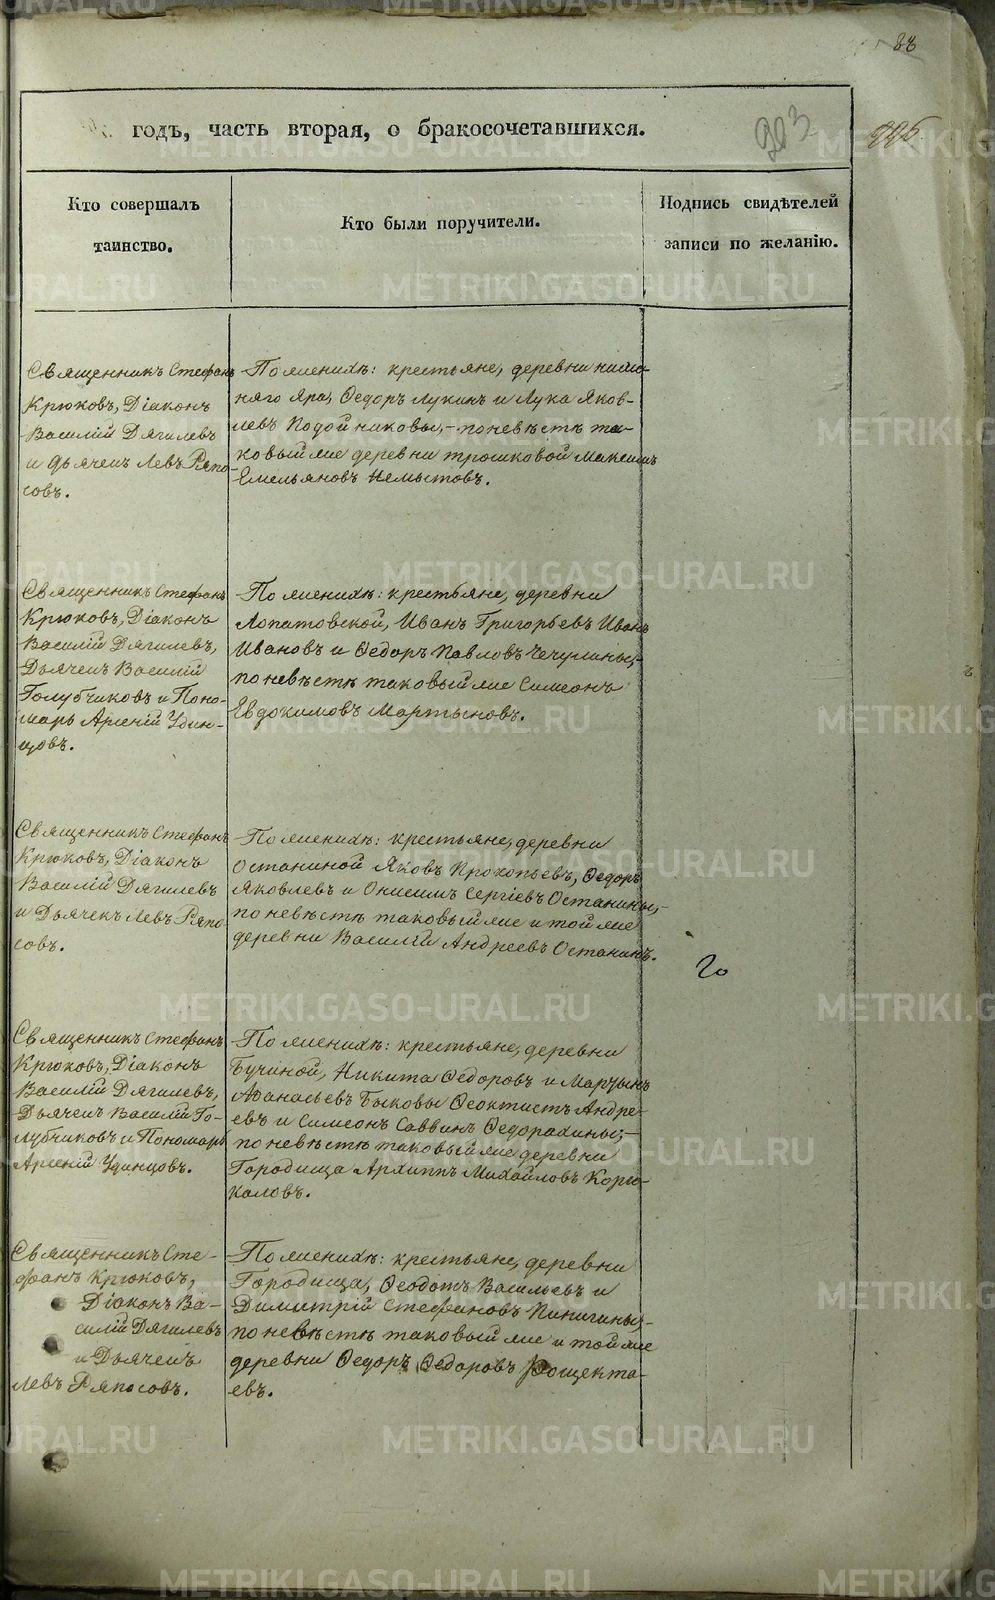 88
годъ, часть вторая, о бракосочетавшихся.
203
226
Кто совершалъ
таинство.
Кто были поручители.
Подпись свидѣтелей
записи по желанію.
Священникъ Стефанъ
Крюковъ, Діаконъ
Василій Дягилевъ
и Дьячекъ Левъ Ряпо-
совъ.
По женихѣ: крестьяне, деревни ниж-
няго Яра, Ѳедоръ Лукинъ и Лука Яков-
левъ Подойниковы,- по невѣстѣ та-
ковый же деревни трошковой Максимъ
Емельяновъ Немытовъ.
Священникъ Стефанъ
Крюковъ, Діаконъ
Василій Дягилевъ,
Дьячекъ Василій
Голубчиковъ и Поно-
марь Арсеній Удин-
цовъ.
По женихѣ: крестьяне, деревни
Лопатовской, Иванъ Григорьевъ Иванъ
Ивановъ и Ѳедоръ Павловъ Чечулины,-
по невѣстѣ таковый же Симеонъ
Евдокимовъ Мартыновъ.
Священникъ Стефанъ
Крюковъ, Діаконъ
Василій Дягилевъ
и Дьячекъ Левъ Ряпо-
совъ.
По женихѣ: крестьяне, деревни
Останиной Яковъ Прокопьевъ, Ѳедоръ
Яковлевъ и Онисимъ Сергіевъ Останины,-
по невѣстѣ таковый же и той же
деревни Василій Андреевъ Останинъ.
Священникъ Стефанъ
Крюковъ, Діаконъ
Василій Дягилевъ,
Дьячекъ Василій Го-
лубчиковъ и Пономарь
Арсеній Удинцовъ.
По женихѣ: крестьяне, деревни
Бучиной, Никита Ѳедоровъ и Мартынъ
Аѳанасьевъ Быковы Ѳеоктистъ Андре-
евъ и Симеонъ Саввинъ Ѳедорахины,-
по невѣстѣ таковый же деревни
Городища Архиппъ Михайловъ Корю-
каловъ.
Священникъ Сте-
фанъ Крюковъ,
Діаконъ Ва-
силій Дягилевъ
и Дьячекъ
Левъ Ряпосовъ.
По женихѣ: крестьяне, деревни
Городища, Ѳеодотъ Васильевъ и
Димитрій Стефановъ Пинигины,-
по невѣстѣ таковый же и той же
деревни Ѳедоръ Ѳедоровъ Рощекта-
евъ.
METRIKI.GASO-URAL.RU